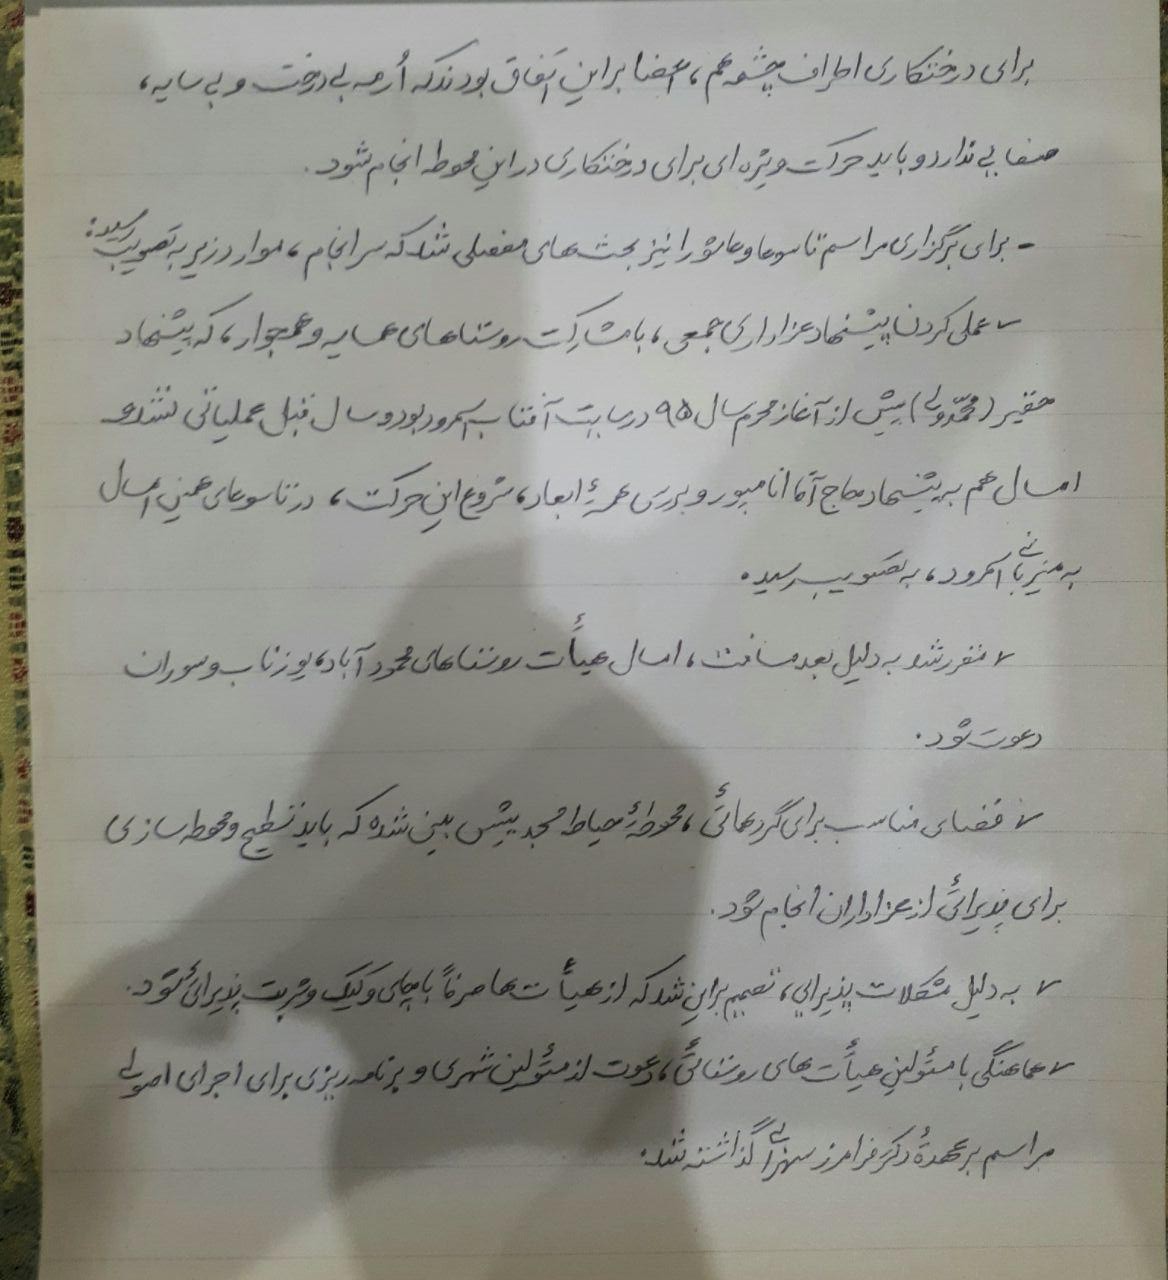 برای درختکاری اطراف چشمه هم، اعضا بر این اتفاق بودند که اُرمه بی درخت و بی سایه،
صفایی ندارد و باید حرکت ویژه ای برای درختکاری در این محوطه انجام شود.
- برای برگزاری مراسم تاسوعا و عاشورا نیز بحث های مفصلی شد که سرانجام، موارد زیر به تصویب رسید:
✓ عملی کردن پیشنهاد عزاداری جمعی، با مشارکت روستاهای همسایه و همجوار، که پیشنهاد
حقیر (محمّدولی) پیش از آغاز محرم سال ۹۵ در سایت آفتاب اسمرود بود و سال قبل عملیاتی نشد و
امسال هم به پیشنهاد حاج آقا انامپور و بررسی همهٔ ابعاد، شروع این حرکت، در تاسوعای همین امسال
به میزبانی اسمرود، به تصویب رسید.
✓ مقرر شد به دلیل بعد مسافت، امسال هیأت روستاهای محمودآباد، یوزناب و سوران
دعوت شود.
✓ فضای مناسب برای گردهمائی، محوطهٔ حیاط مسجد پیش بینی شده که باید تسطیح و محوطه سازی
برای پذیرائی از عزاداران انجام شود.
✓ به دلیل مشکلات پذیرایی، تصمیم بر این شد که از هیأت ها صرفاً با چای و کیک و شربت پذیرائی شود.
✓ هماهنگی با مسئولین هیأت های روستائی، دعوت از مسئولین شهری و برنامه ریزی برای اجرای اصولی
مراسم بر عهدهٔ دکتر فرامرز سهرابی گذاشته شد.